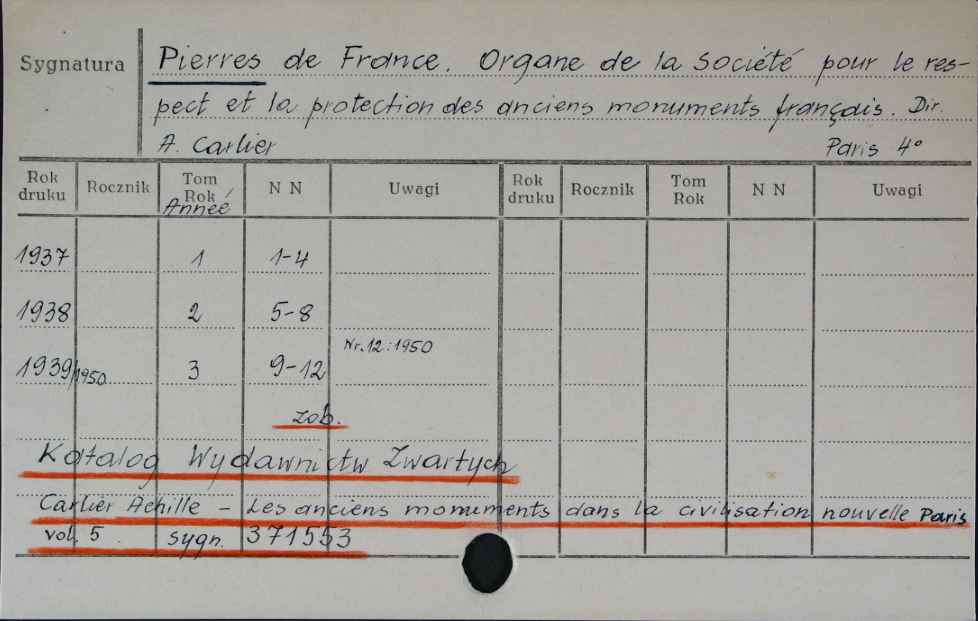 Sygnatura Pierres de France. Organe de la Société pour le res-
pect et la protection des anciens monuments français. Dir.
A. Carlier Paris 4°
Rok druku Rocznik Tom Rok Année N N Uwagi Rok druku Rocznik Tom Rok N N Uwagi
1937 1 1-4
1938 2 5-8
1939/1950 3 9-12 Nr.12:1950
zob.
Katalog Wydawnictw Zwartych
Carlier Achille - Les anciens monuments dans la civilisation nouvelle Paris
vol. 5 sygn. 371553